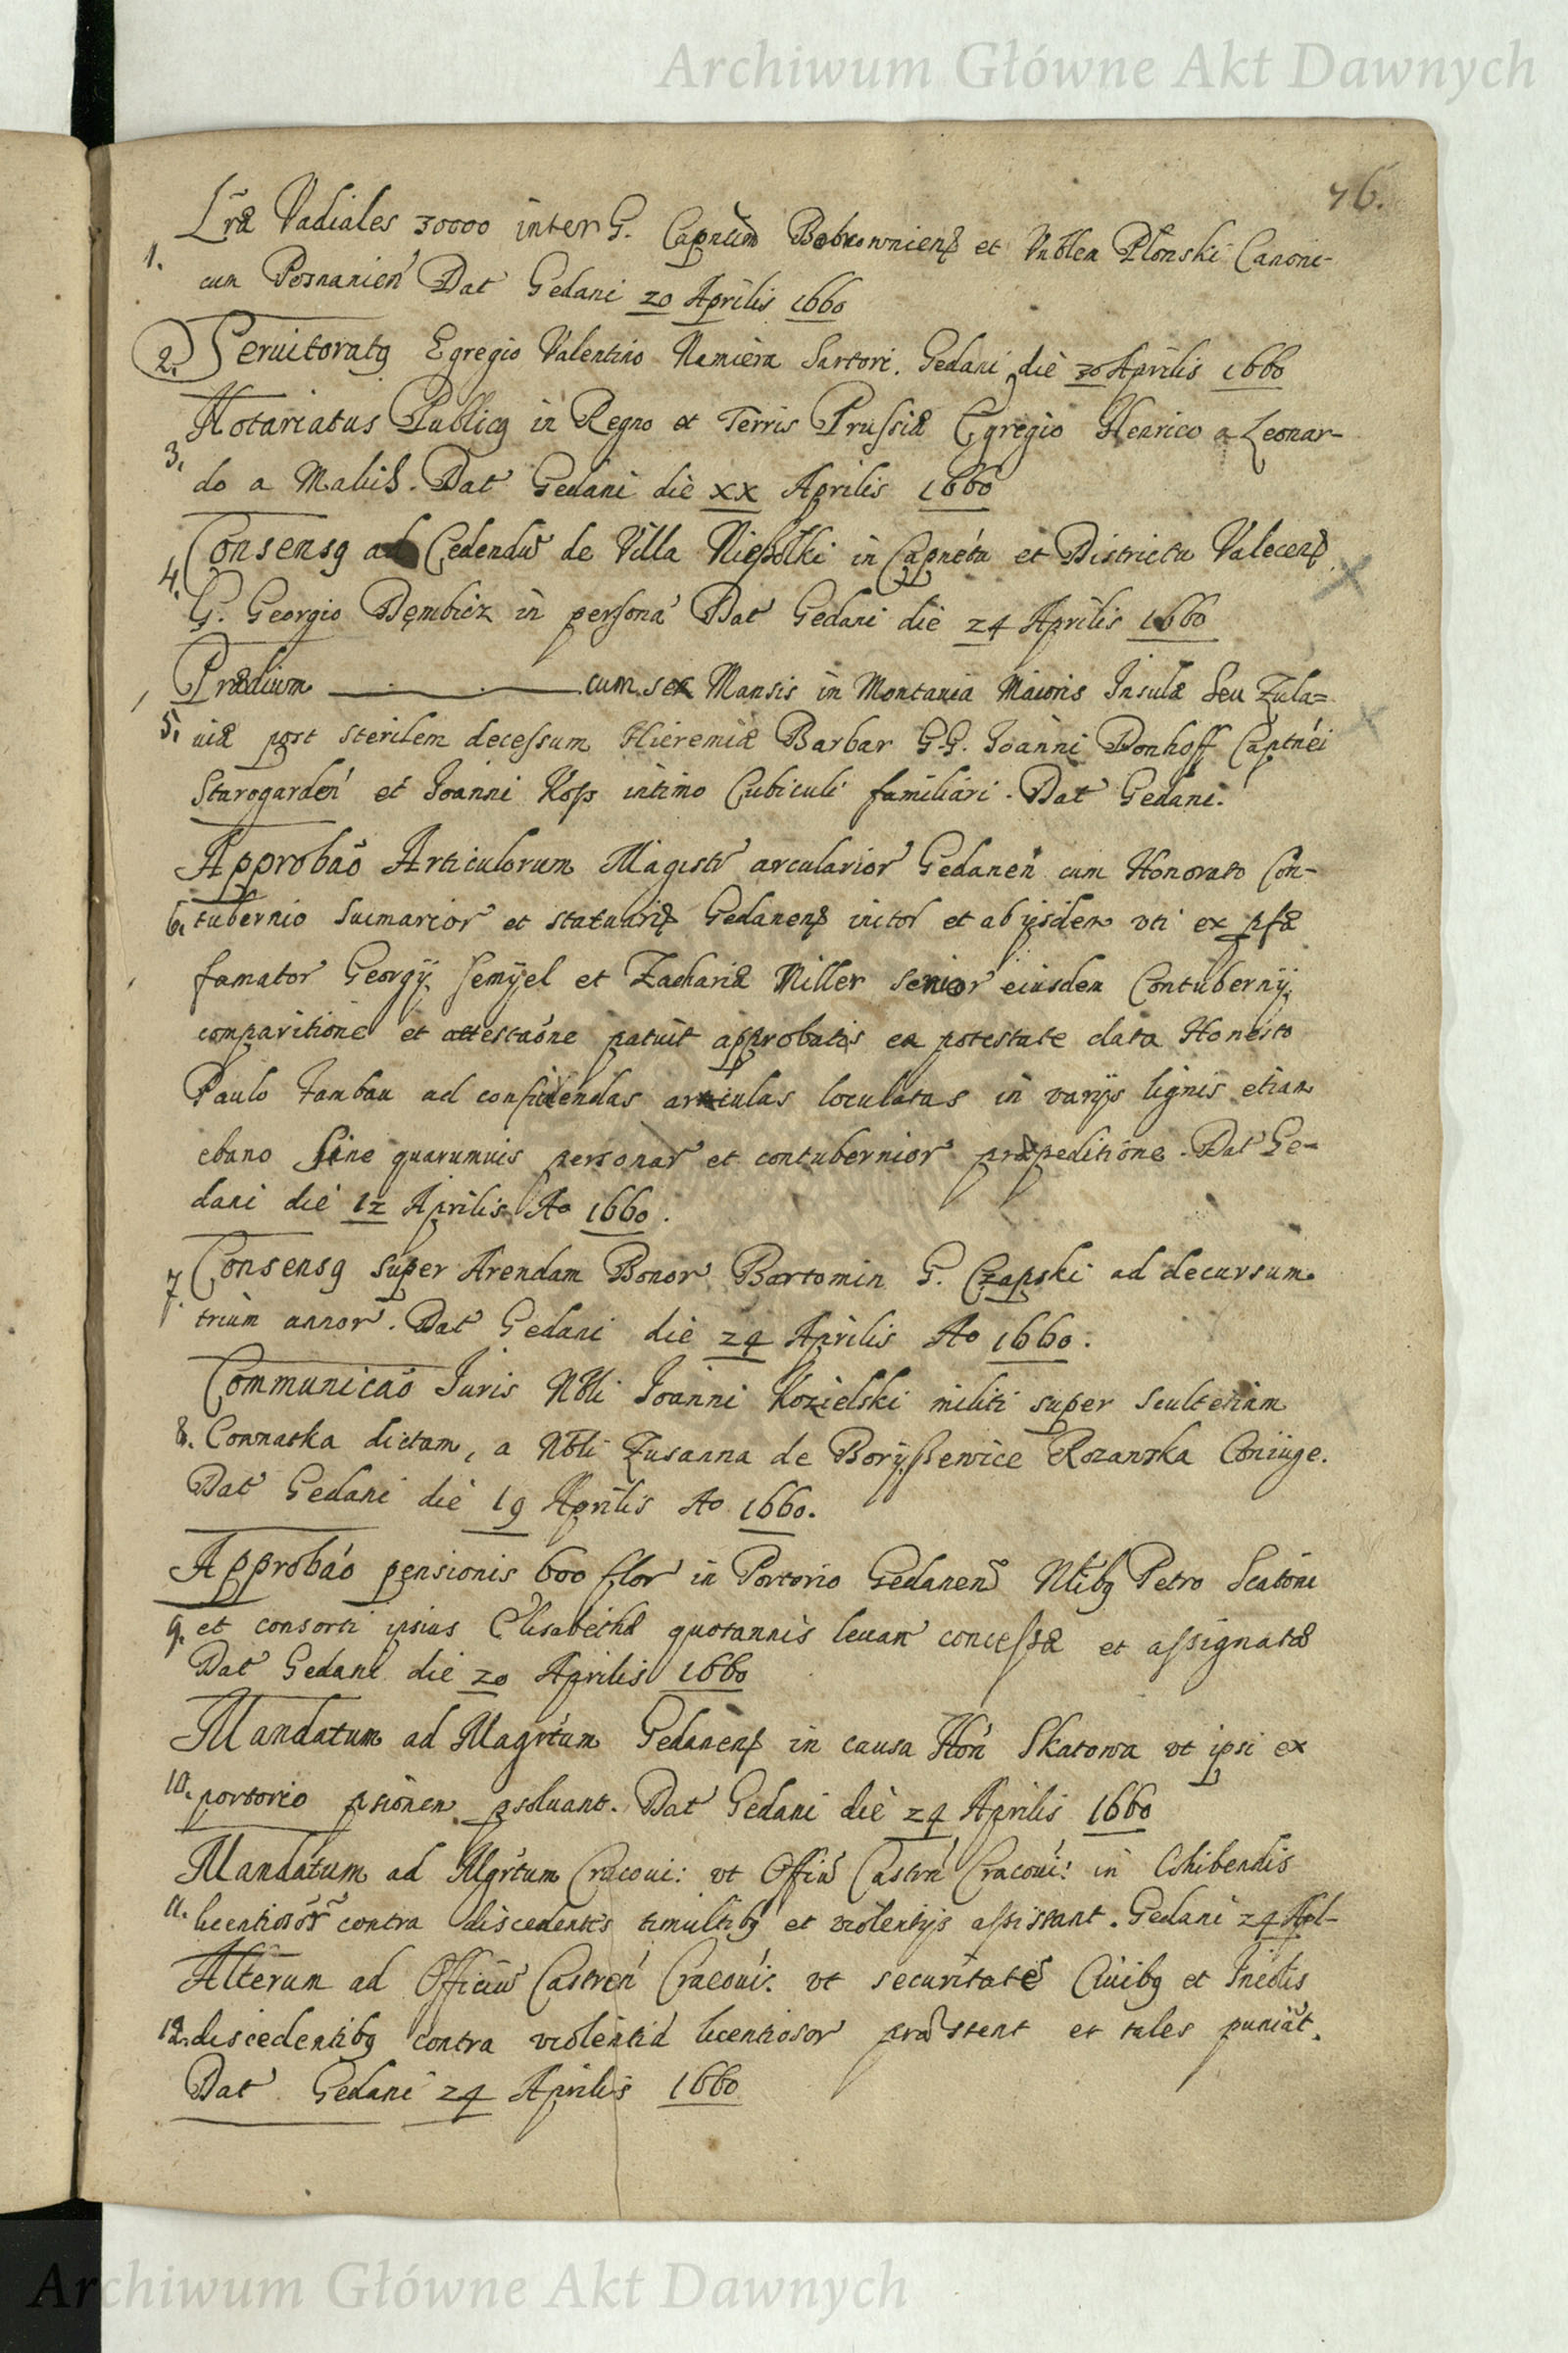 Archiwum Główne Akt Dawnych
76.
Lræ Vadiales 30000 inter G. Capneum Bobrowniens et Vnblem Płonski Canoni-
1. cum Posnanień Dat Gedani 20 Aprilis 1660
2. Seruitoratus Egregio Valentino Namiera Sartori. Gedani die 30 Aprilis 1660
Notariatus Publicus in Regno et Terris Prussiæ Egregio Henrico a Leonar-
3. do a Mahis. Dat Gedani die XX Aprilis 1660
Consensus ad Cedendū de Villa Niepolki in Capnéta et Districtu Valecens
4. G. Georgio Dęmbicz in persona Dat Gedani die 24 Aprilis 1660
Prædium cum sex Mansis in Montania Maioris Insulæ seu Zula=
5. uiæ post sterilem decessum Hieremiæ Barbar G.G. Joanni Donhoff Captnéi
Starogardeń et Joanni Koss intimo Cubiculi familiari. Dat Gedani.
Approbaō Articulorum Magistr arcularior Gedaneń cum Honorato Con-
6. tubernio et statuaris Gedanens initor et ab ijsdem vti ex
famator Georgÿ et Zachariæ Miller senior eiusdem Contubernÿ
comparitione et attestaōne patuit approbatis ea potestate data Honesto
Paulo Tambau ad conficiendas arculas loculatas in varijs lignis etiam
ebano sine quarumuis personar et contubernior præpeditione. Dat Ge-
dani die 12 Aprilis Ao 1660.
7. Consensus super Arendam Bonor Bartomin G. Czapski ad decursum
trium annor. Dat Gedani die 24 Aprilis Ao 1660.
Communicaō Juris Nbli Joanni Kozielski militi super Scultetiam
8. Connatka dictam, a Nbli Zusanna de Boryssewice Rozanska Coniuge.
Dat Gedani die 19 Aprilis Ao 1660.
Approbaō pensionis 600 flor in Portorio Gedanens Ntibus Petro Scatoni
9. et consorti ipsius Elisabethæ quotannis leuan concessæ et assignatæ
Dat Gedani die 20 Aprilis 1660
Mandatum ad Magrtum Gedanens in causa Hoń Skatowa vt ipsi ex
10. portorio psionem psoluant. Dat Gedani die 24 Aprilis 1660
Mandatum ad Mgrtum Cracoui: vt Offiū Castrń Cracoui: in Cohibendis
11. licentiosor contra discedentes tumultibus et violentijs assistant. Gedani 24 Apl-
Alterum ad Officiū Castreń Cracoui: vt securitatē Ciuibus et Incolis
12. discedentibus contra violentiā licentiosor præstent et tales puniāt.
Dat Gedani 24 Aprilis 1660
Archiwum Główne Akt Dawnych